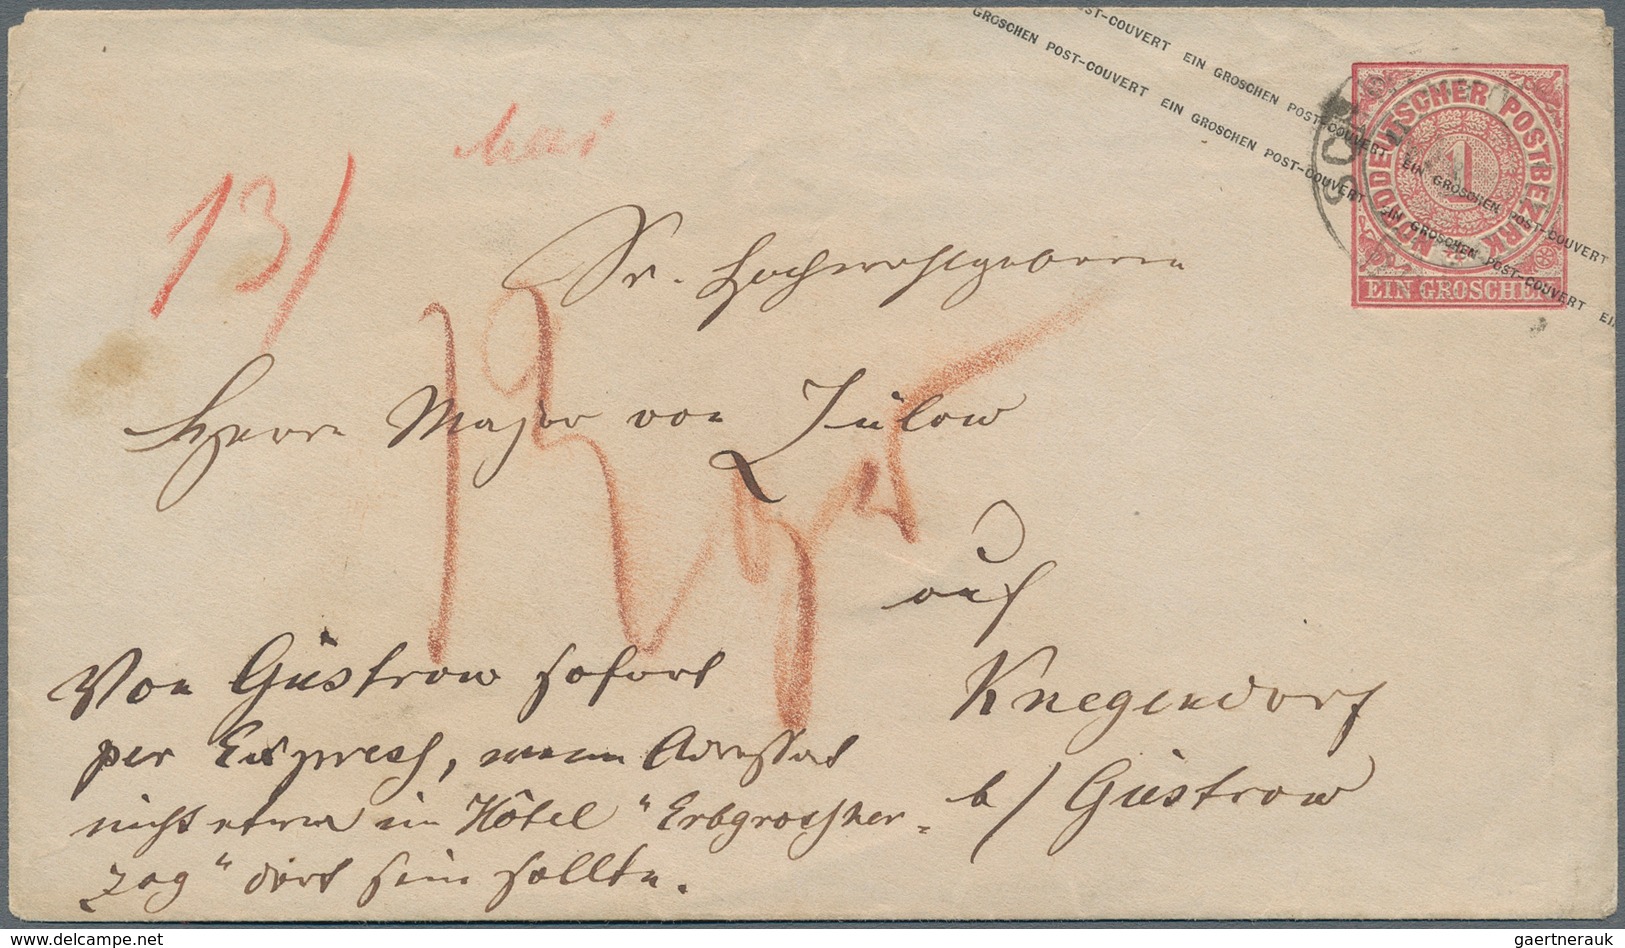 POST-COUVERT EIN GROSCHEN POST-COUVERT EIN GROSCHEN POST-COUVERT
GROSCHEN POST-COUVERT EIN GROSCHEN POST-COUVERT EIN GROSCHEN POST-COUVERT EIN
NORDDEUTSCHER POSTBEZIRK
1
EIN GROSCHEN
13/
Sr. Hochwohlgeboren
Herrn Major von Zülow
auf
Knegendorf
b/ Güstrow
Von Güstrow sofort
per Express, wenn Adressat
nicht etwa im Hôtel "Erbgrossher-
zog" dort sein sollte.
gaertnerauk